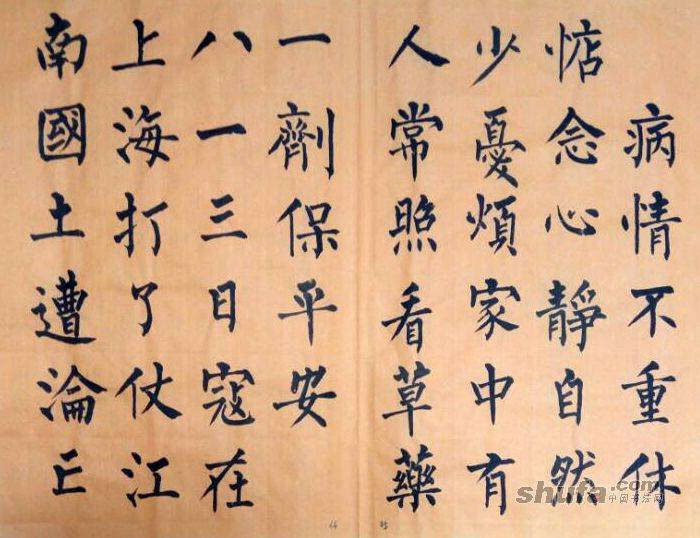 病情不重休
惦念心靜自然
少憂煩家中有
人常照看草藥
一劑保平安
八一三日寇在
上海打了仗江
南國土遭淪亡
shufa.com
中国书法网